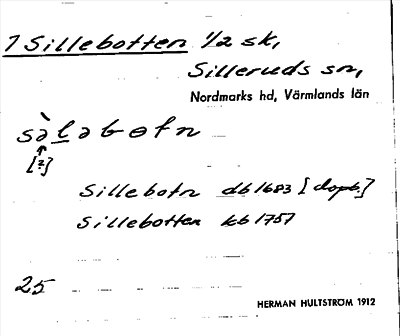 7 Sillebotten 1/2 sk,
Silleruds sn,
Nordmarks hd, Värmlands län
sə̀lləbɵtn
[?]
Sillebotn db 1683 [dopb.]
Sillebotten kb 1757
25
HERMAN HULTSTRÖM 1912